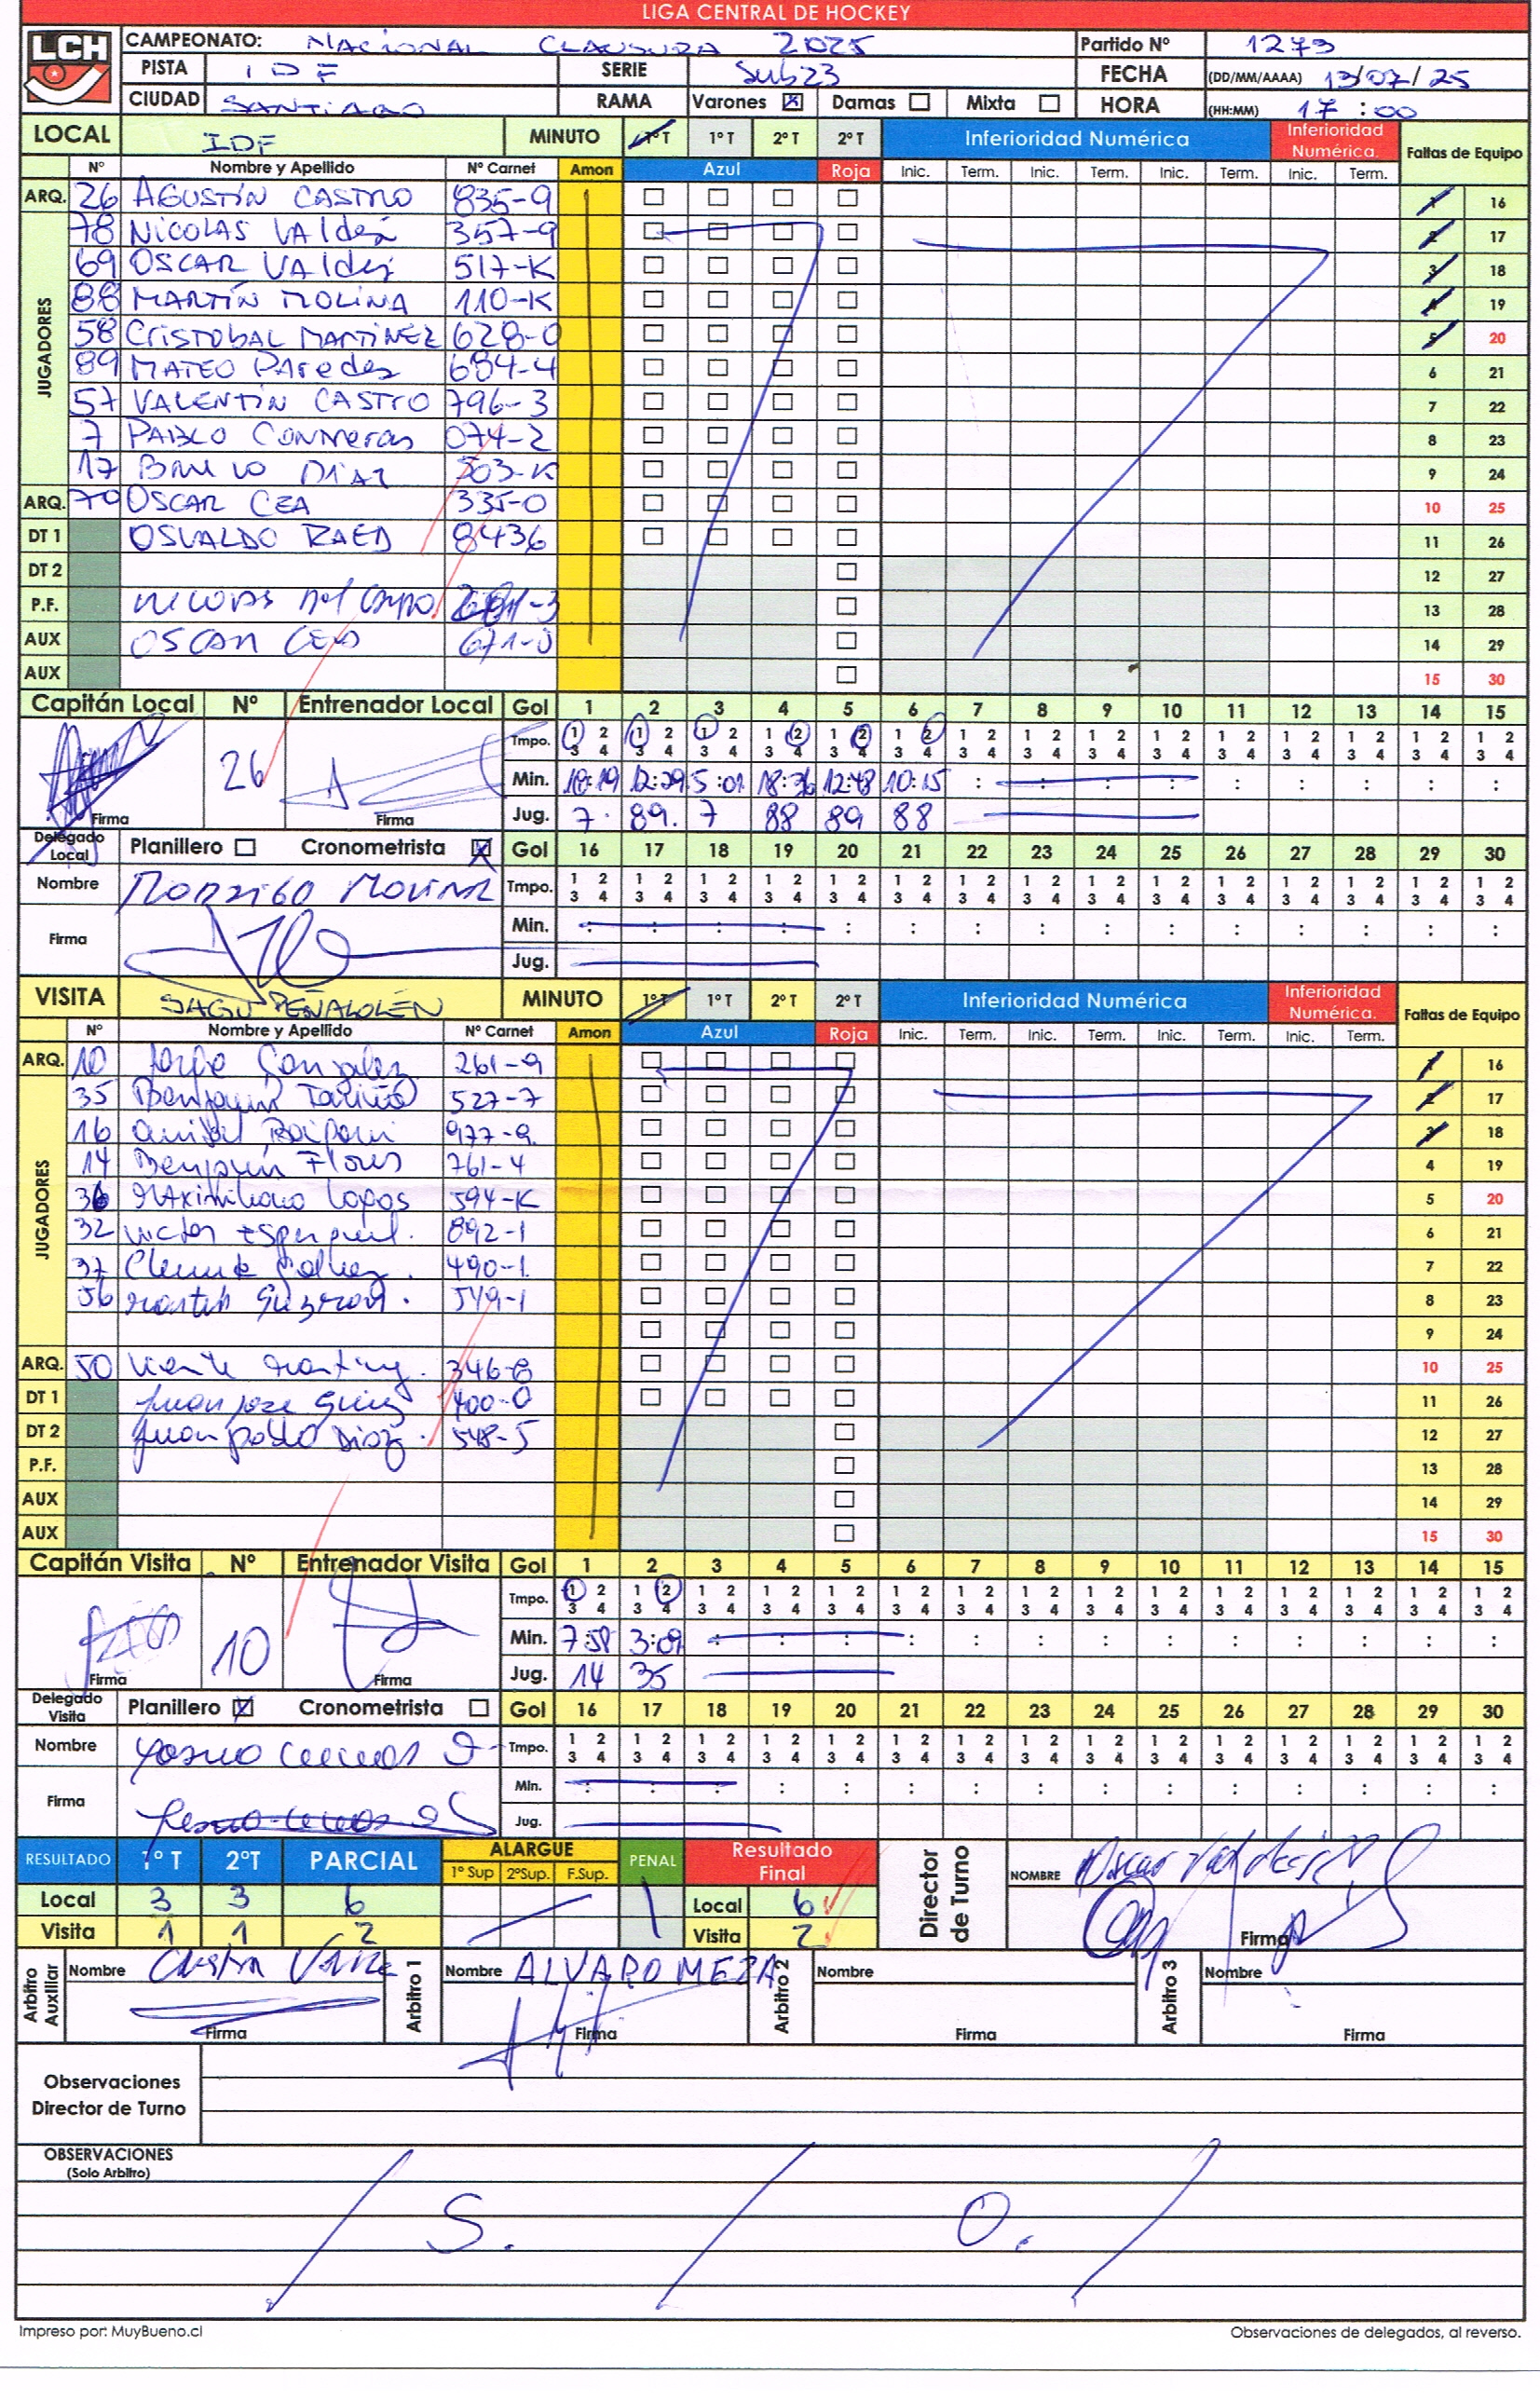 LIGA CENTRAL DE HOCKEY
LCH
CAMPEONATO: NACIONAL CLAUSURA 2025 Partido Nº 1273
PISTA IDF SERIE Sub23 FECHA (DD/MM/AAAA) 13/07/25
CIUDAD SANTIAGO RAMA Varones ☒ Damas ☐ Mixta ☐ HORA (HH:MM) 17:00
LOCAL IDF MINUTO 1º T 1º T 2º T 2º T Inferioridad Numérica Inferioridad Numérica. Faltas de Equipo
Nº Nombre y Apellido Nº Carnet Amon Azul Roja Inic. Term. Inic. Term. Inic. Term. Inic. Term.
ARQ. 26 AGUSTÍN CASTRO 835-9 1 16
JUGADORES
78 NICOLAS VALdés 357-9 2 17
69 OSCAR VALdés 517-K 3 18
88 MARTÍN MOLINA 110-K 4 19
58 CRISTOBAL MARTINEZ 628-0 5 20
89 MATEO PAredes 684-4 6 21
57 VALENTÍN CASTRO 796-3 7 22
7 PABLO Contreras 074-2 8 23
17 BRUNO DIAZ 503-K 9 24
ARQ. 70 OSCAR CEA 335-0 10 25
DT 1 OSVALDO RAED 8436 11 26
DT 2 12 27
P.F. NICOLAS del Campo 13 28
AUX OSCAR CEA 671-0 14 29
AUX 15 30
Capitán Local Nº Entrenador Local Gol 1 2 3 4 5 6 7 8 9 10 11 12 13 14 15
Tmpo. 1 2 3 4 1 2 3 4 1 2 3 4 1 2 3 4 1 2 3 4 1 2 3 4 1 2 3 4 1 2 3 4 1 2 3 4 1 2 3 4 1 2 3 4 1 2 3 4 1 2 3 4 1 2 3 4 1 2 3 4
26 Min. 18:19 12:29 5:01 18:36 12:48 10:15
Firma Firma Jug. 7. 89. 7 88 89 88
Delegado Local Planillero ☐ Cronometrista ☒ Gol 16 17 18 19 20 21 22 23 24 25 26 27 28 29 30
Nombre RODRIGO MOLINA Tmpo. 1 2 3 4 1 2 3 4 1 2 3 4 1 2 3 4 1 2 3 4 1 2 3 4 1 2 3 4 1 2 3 4 1 2 3 4 1 2 3 4 1 2 3 4 1 2 3 4 1 2 3 4 1 2 3 4 1 2 3 4
Firma Min.
Jug.
VISITA SAGU PEÑALOLÉN MINUTO 1º T 1º T 2º T 2º T Inferioridad Numérica Inferioridad Numérica. Faltas de Equipo
Nº Nombre y Apellido Nº Carnet Amon Azul Roja Inic. Term. Inic. Term. Inic. Term. Inic. Term.
ARQ. 10 Jorge Gonzalez 261-9 1 16
JUGADORES
35 Benjamin 527-7 2 17
16 977-9. 3 18
14 Benjamín Flores 761-4 4 19
36 Maximiliano Lagos 594-K 5 20
32 Victor 892-1 6 21
37 490-1. 7 22
56 Martin 549-1 8 23
9 24
ARQ. 50 346-8 10 25
DT 1 Juan Jose 400-0 11 26
DT 2 Juan pablo Diaz. 548-5 12 27
P.F. 13 28
AUX 14 29
AUX 15 30
Capitán Visita Nº Entrenador Visita Gol 1 2 3 4 5 6 7 8 9 10 11 12 13 14 15
Tmpo. 1 2 3 4 1 2 3 4 1 2 3 4 1 2 3 4 1 2 3 4 1 2 3 4 1 2 3 4 1 2 3 4 1 2 3 4 1 2 3 4 1 2 3 4 1 2 3 4 1 2 3 4 1 2 3 4 1 2 3 4
10 Min. 7:58 3:09
Firma Firma Jug. 14 35
Delegado Visita Planillero ☒ Cronometrista ☐ Gol 16 17 18 19 20 21 22 23 24 25 26 27 28 29 30
Nombre Tmpo. 1 2 3 4 1 2 3 4 1 2 3 4 1 2 3 4 1 2 3 4 1 2 3 4 1 2 3 4 1 2 3 4 1 2 3 4 1 2 3 4 1 2 3 4 1 2 3 4 1 2 3 4 1 2 3 4 1 2 3 4
Firma Min.
Jug.
RESULTADO 1º T 2ºT PARCIAL ALARGUE 1º Sup 2ºSup. F.Sup. PENAL Resultado Final Director de Turno NOMBRE Oscar
Local 3 3 6 Local 6
Visita 1 1 2 Visita 2 Firma
Arbitro Auxiliar Nombre Arbitro 1 Nombre ALVARO MEZA Arbitro 2 Nombre Arbitro 3 Nombre
Firma Firma Firma Firma
Observaciones
Director de Turno
OBSERVACIONES
(Solo Arbitro)
/ S. / O. /
Impreso por: MuyBueno.cl Observaciones de delegados, al reverso.